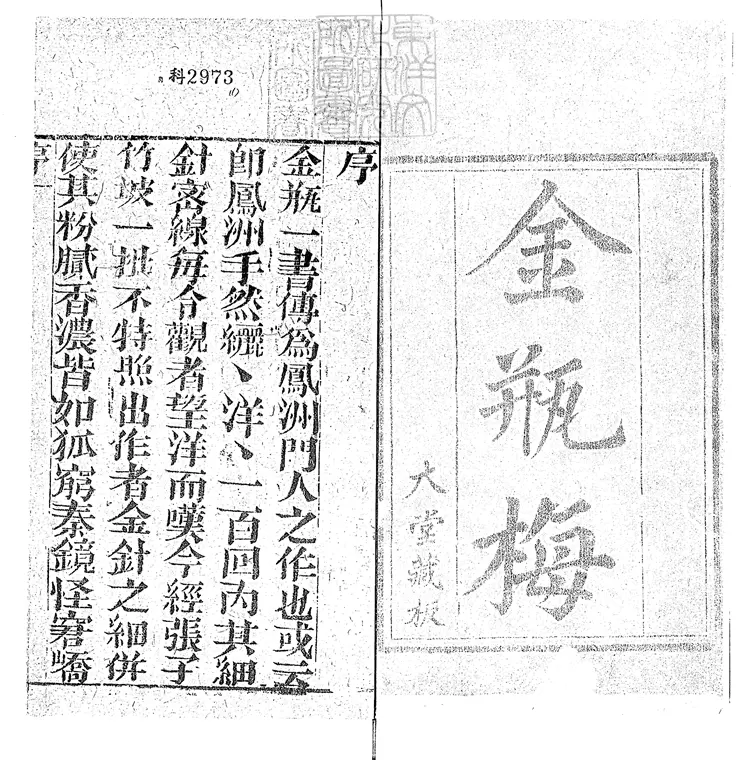 金瓶梅
大堂藏板
科2973
序
金瓶一書傳為鳳洲門人之作也或云
卽鳳洲手然纚丶洋丶一百回内其細
針密線每令觀者望洋而嘆今經張子
竹坡一批不特照出作者金針之細併
使其粉膩香濃皆如狐窮秦鏡怪窘嶠
序一